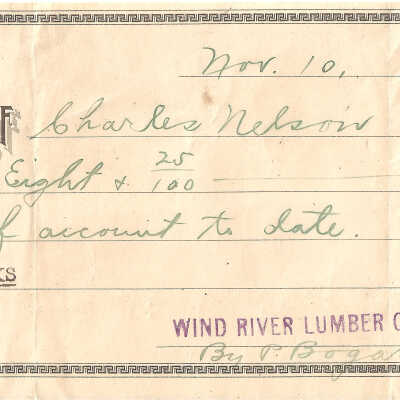 Nov. 10,
F Charles Nelson
Eight & 25/100
f account to date.
KS
WIND RIVER LUMBER C
By P. Boga